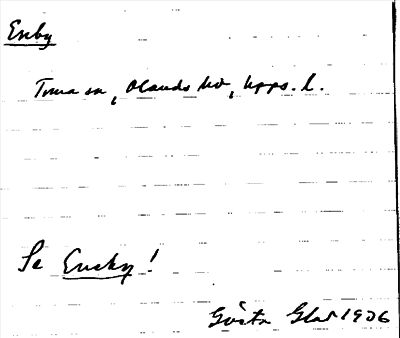 Enby
Tuna sn, Olands hd, Upps. l.
Se Eneby!
Gösta 1926